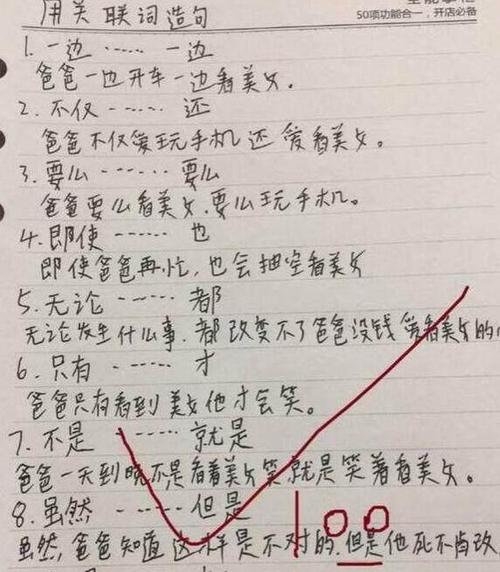 用关联词造句
50项功能合一,开店必备
1. 一边 …… 一边
爸爸一边开车一边看美女。
2. 不仅 …… 还
爸爸不仅爱玩手机还爱看美女。
3. 要么 …… 要么
爸爸要么看美女,要么玩手机。
4. 即使 …… 也
即使爸爸再忙,也会抽空看美女
5. 无论 …… 都
无论发生什么事,都改变不了爸爸没钱爱看美女的
6. 只有 …… 才
爸爸只有看到美女他才会笑。
7. 不是 …… 就是
爸爸一天到晚不是看着美女笑就是笑着看美女。
8. 虽然 …… 但是
虽然,爸爸知道这样是不对的,但是他死不肯改
100